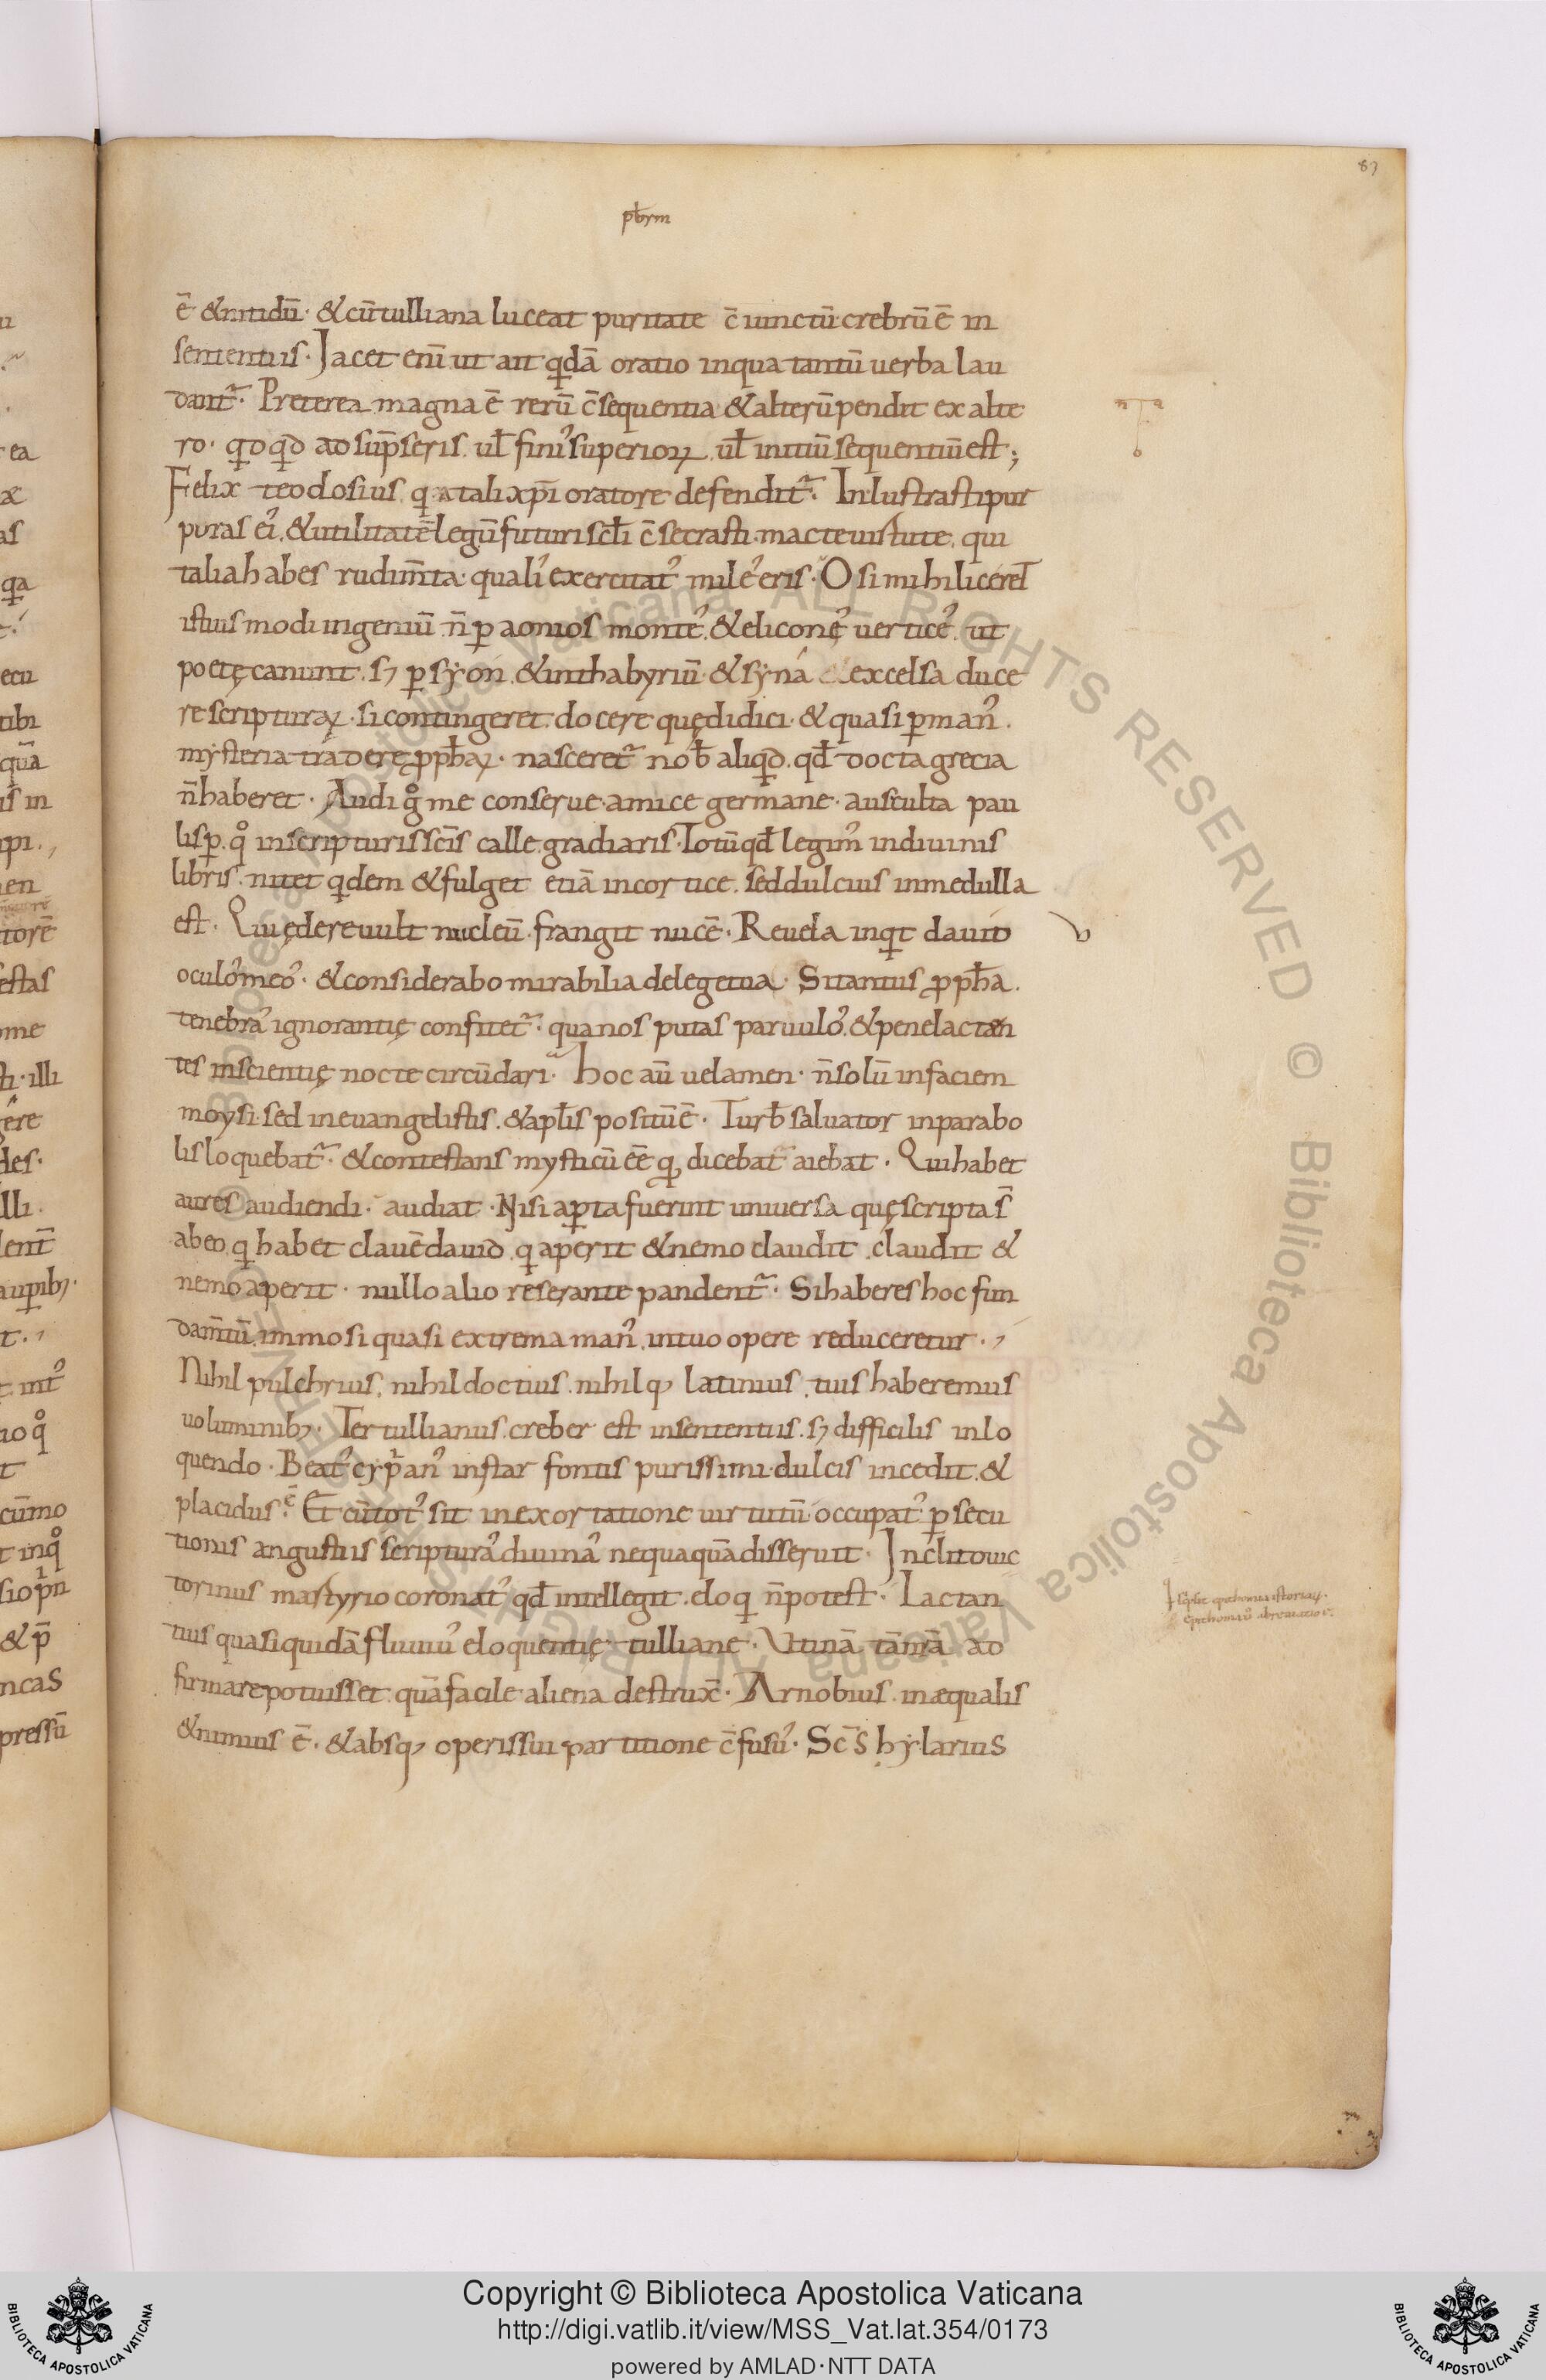 83
pƀrm
ē &nitidū· &cū tulliana luceat puritate c̄ iunctū· crebrū ē in
sententiis· Jacet eni᷒ ut ait qđā oratio inqua tantū uerba lau
dant᷑· Preterea magna ē rerū c̄sequentia &alterū pendit ex alte
ro· qđqđ adsūpseris. uł fini᷒ superioꝝ. uł initiū sequentiū est;
Felix teodosius, q a tali xp̄i oratore defendit᷑· Inlustrasti pur
puras ei᷒. &utilitatē legū futuri scłi c̄secrasti. macte uirtute. qui
talia habes rudim̄ta· quali᷒ exercitat᷒ mile᷒ eris· O si mihi liceret
istiusmodi ingeniū n̄ ꝑ aonios monte᷒. &eliconę᷒ uertice᷒. ut
poetę canunt. sꝫ ꝑ syon. &inthabyriū· &syna &excelsa duce
re scripturaꝝ· si contingeret. docere quę didici· & quasi ꝑ man᷒.
mysteria tradere ꝓpħaꝝ· nasceret᷑ noƀ aliqđ. qđ docta grecia
n̄ haberet· Audi g̊ me conserue· amice germane· ausculta pau
lisꝑ. q̊ inscripturis scīs calle gradiaris· Totū qđ legim᷒ indiuinis
libris· nitet qdem &fulget etiā incortice. sed dulcius inmedulla
est· Qui ędere uult nucleū. frangit nucē· Reuela inqt dauid
oculo᷒ meo᷒· &considerabo mirabilia delegetua· Si tantus ꝓpħa.
tenebra᷒ ignorantię confitet᷑· qua nos putas paruulo᷒. &penelactan
tes inscientię nocte circūdari· hoc aū uelamen· n̄ solū infaciem
moysi· sed ineuangelistis. &apłis positū ē· Turƀ saluator inparabo
lis loquebat᷑· &contestans mysticū ēē qđ dicebat᷑ aiebat· Qui habet
aures audiendi· audiat· Nisi aꝑta fuerint uniuersa quę scripta s̄
abeo. q habet clauē dauid. q aperit &nemo claudit. claudit &
nemo aperit· nullo alio reserante pandent᷑· Si haberes hoc fun
dam̄tū. immo si quasi extrema man᷒. intuo opere reduceretur·,
Nihil pulchrius. nihil doctius. nihilq; latinius. tuis haberemus
uoluminibꝫ· Tertullianus. creber est insententiis. sꝫ difficilis inlo
quendo· Beat᷒ cyp̄an᷒ instar fontis purissimi· dulcis incedit. &
placidus· Et cū tot᷒ sit inexortatione uirtutū· occupat᷒ ꝑsecu
tionis angustiis scriptura᷒ diuina᷒ nequaquā disseruit· Inclito uic
torinus martyrio coronat᷒ qđ intellegit. eloq n̄ potest· Lactan
tius quasi quidā fluuiu᷒ eloquentię tulliane· Utinā tam̄ a᷒ ad
firmare potuisset. quā facile aliena destrux̄· Arnobius. inæqualis
&nimius ē· &absq; operis sui partitione c̄fusu᷒· Sc̄s hylarius
Copyright © Biblioteca Apostolica Vaticana
http://digi.vatlib.it/view/MSS_Vat.lat.354/0173
powered by AMLAD·NTT DATA